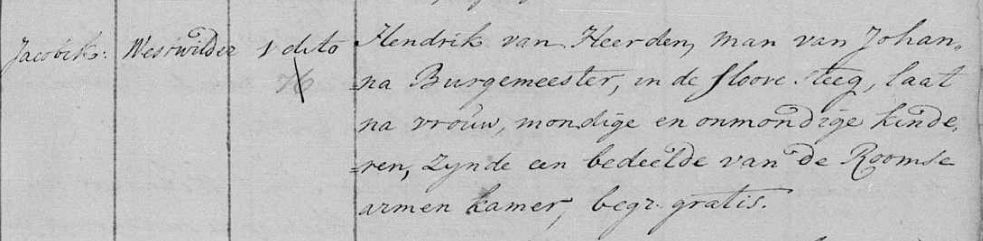 Jacobik: Westwilder 1 dito Hendrik van Heerden, man van Johan„
76 „na Burgemeester, in de Sloove steeg, laat
na vrouw, mondige en onmondige kinde„
„ren, zynde een bedeelde van de Roomse
armen kamer, begr. gratis.